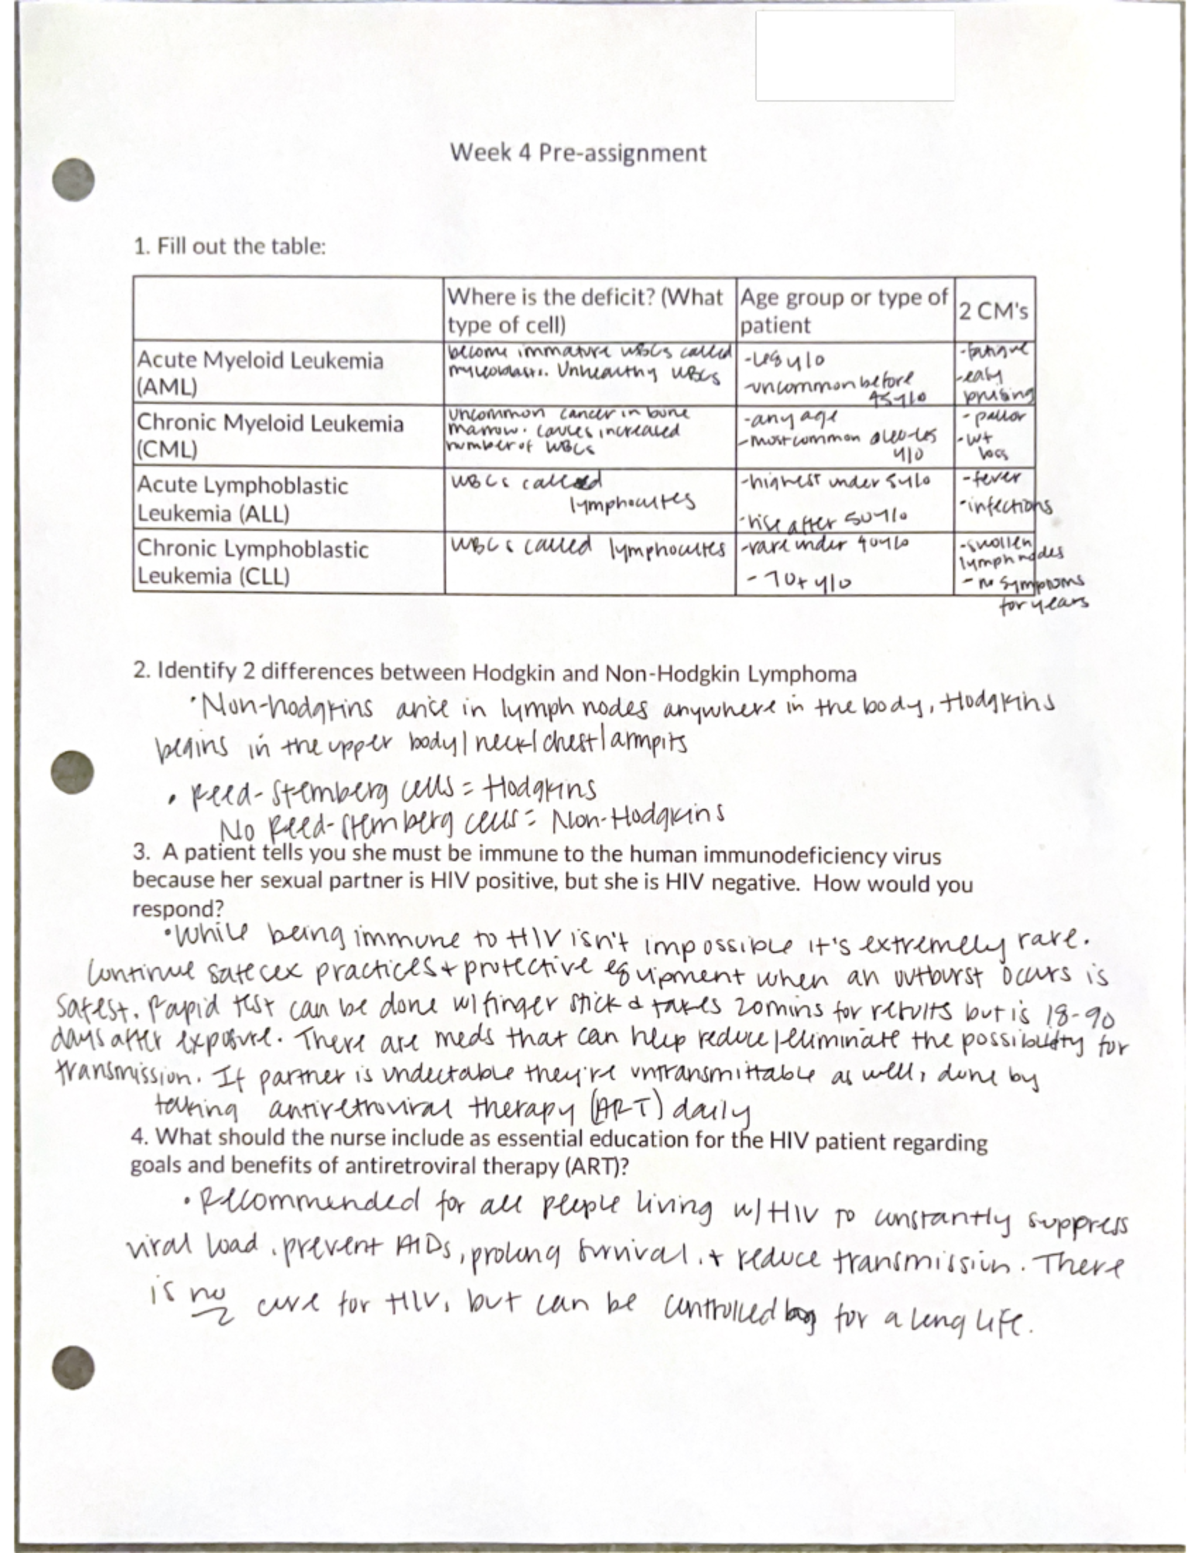 Week 4 Pre-assignment
1. Fill out the table:
Where is the deficit? (What type of cell)
Age group or type of patient
2 CM's
Acute Myeloid Leukemia (AML)
become immature WBCs called
myeoblasts. Unhealthy WBCs
-uncommon before
45 y/o
-fatigue
-easy
bruising
Chronic Myeloid Leukemia (CML)
uncommon cancer in bone
marrow. causes increased
number of WBCs
-any age
-most common
y/o
- pallor
-wt
loss
Acute Lymphoblastic Leukemia (ALL)
WBCs called
lymphocytes
-highest under 5 y/o
-rise after 50 y/o
-fever
-infections
Chronic Lymphoblastic Leukemia (CLL)
WBCs called lymphocytes
-rare under 40 y/o
- 70+ y/o
-swollen
lymph nodes
- no symptoms
for years
2. Identify 2 differences between Hodgkin and Non-Hodgkin Lymphoma
•Non-hodgkins arice in lymph nodes anywhere in the body, Hodgkins
begins in the upper body/neck/chest/armpits
• Reed-Stemberg cells = Hodgkins
No Reed-Stemberg cells = Non-Hodgkins
3. A patient tells you she must be immune to the human immunodeficiency virus
because her sexual partner is HIV positive, but she is HIV negative. How would you
respond?
•While being immune to HIV isn't impossible it's extremely rare.
Continue safe sex practices + protective equipment when an outburst occurs is
safest. Rapid test can be done w/ finger stick & takes 20mins for results but is 18-90
days after exposure. There are meds that can help reduce/eliminate the possibility for
transmission. If partner is undectable they're untransmittable as well, done by
taking antiretroviral therapy (ART) daily
4. What should the nurse include as essential education for the HIV patient regarding
goals and benefits of antiretroviral therapy (ART)?
• Recommended for all people living w/ HIV to constantly suppress
viral load, prevent AIDs, prolong survival, + reduce transmission. There
is no cure for HIV, but can be controlled for a long life.